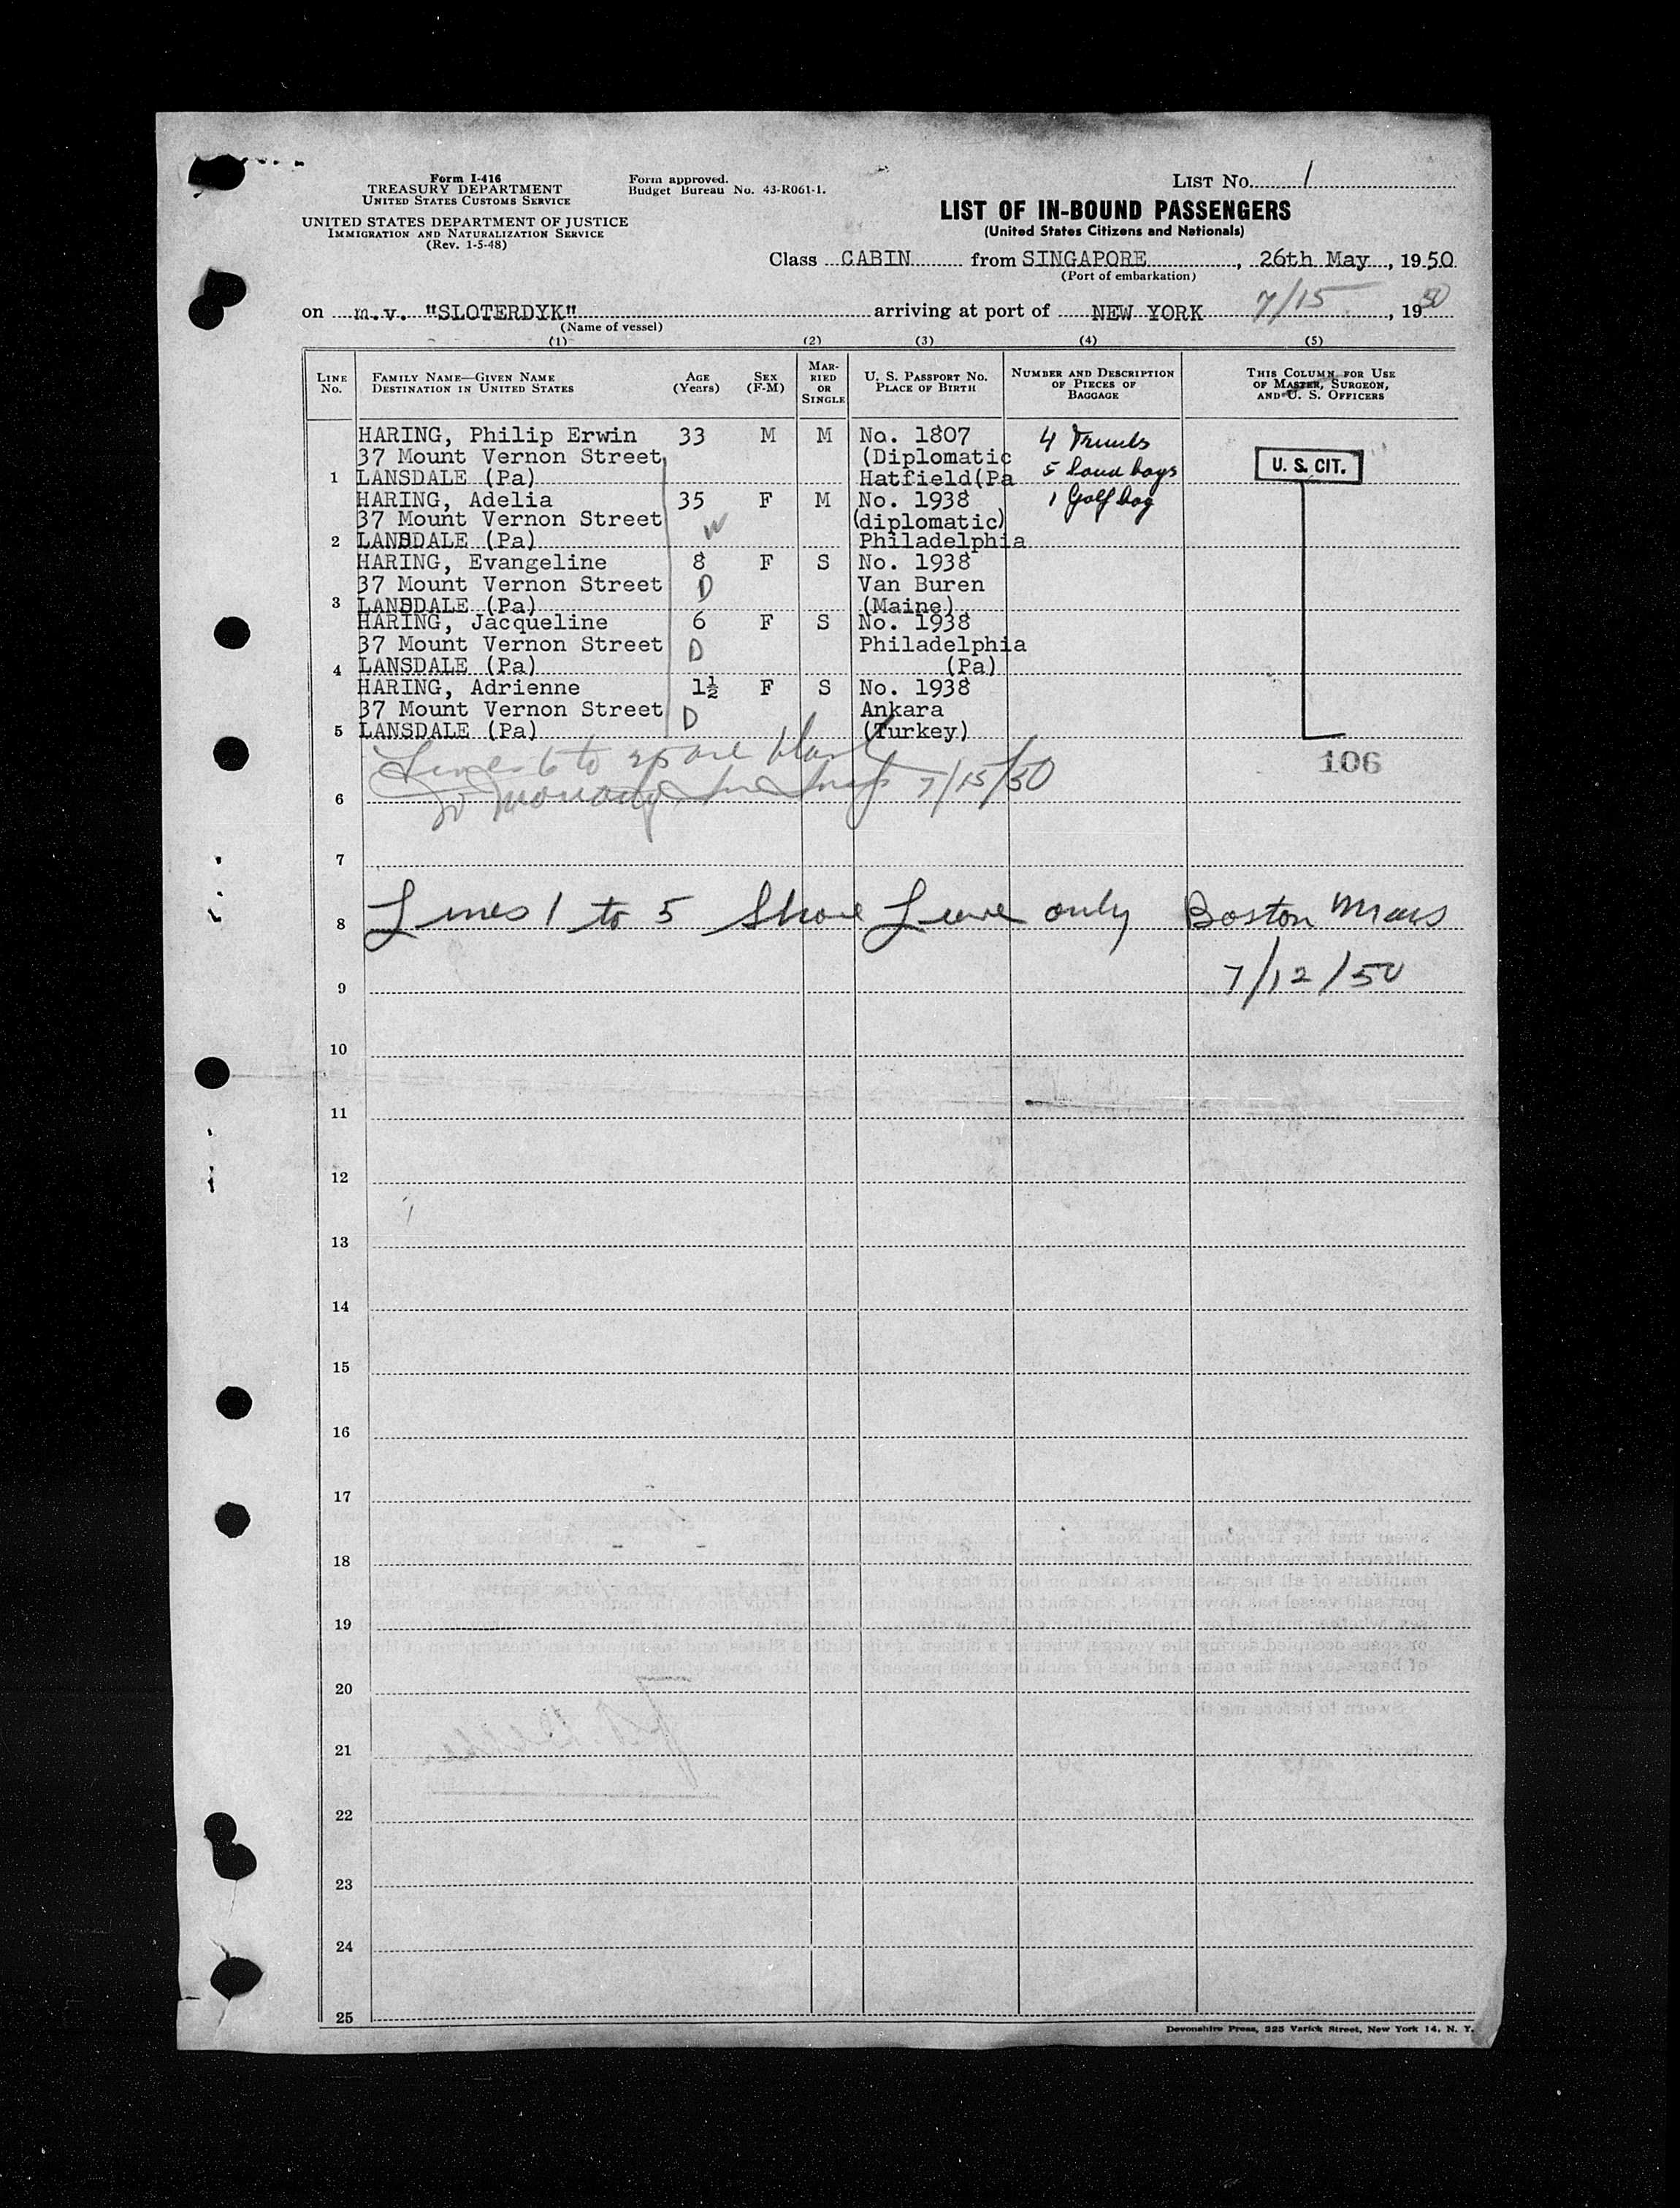 Form I-416
TREASURY DEPARTMENT
UNITED STATES CUSTOMS SERVICE
UNITED STATES DEPARTMENT OF JUSTICE
IMMIGRATION AND NATURALIZATION SERVICE
(Rev. 1-5-48)
Form approved.
Budget Bureau No. 43-R061-1.
LIST No. 1
LIST OF IN-BOUND PASSENGERS
(United States Citizens and Nationals)
Class CABIN from SINGAPORE, 26th May, 1950
(Port of embarkation)
on m.v. "SLOTERDYK" arriving at port of NEW YORK 7/15, 1950
(Name of vessel)
(1) (2) (3) (4) (5)
LINE No.
FAMILY NAME—GIVEN NAME
DESTINATION IN UNITED STATES
AGE (Years)
SEX (F-M)
MARRIED OR SINGLE
U. S. PASSPORT NO.
PLACE OF BIRTH
NUMBER AND DESCRIPTION OF PIECES OF BAGGAGE
THIS COLUMN FOR USE OF MASTER, SURGEON, AND U. S. OFFICERS
HARING, Philip Erwin 33 M M No. 1807 4 Trunks
37 Mount Vernon Street (Diplomatic
1 LANSDALE (Pa) Hatfield(Pa 5 hand bags U. S. CIT.
HARING, Adelia 35 F M No. 1938 1 Golf bag
37 Mount Vernon Street W (diplomatic)
2 LANSDALE (Pa) Philadelphia
HARING, Evangeline 8 F S No. 1938
37 Mount Vernon Street D Van Buren
3 LANSDALE (Pa) (Maine)
HARING, Jacqueline 6 F S No. 1938
37 Mount Vernon Street D Philadelphia
4 LANSDALE (Pa) (Pa)
HARING, Adrienne 1½ F S No. 1938
37 Mount Vernon Street D Ankara
5 LANSDALE (Pa) (Turkey)
Lines 6 to 25 are blank
106
7/15/50
6
7
8 Lines 1 to 5 Shore Leave only Boston Mass
9 7/12/50
10
11
12
13
14
15
16
17
18
19
20
21
22
23
24
25
Devonshire Press, 225 Varick Street, New York 14, N. Y.